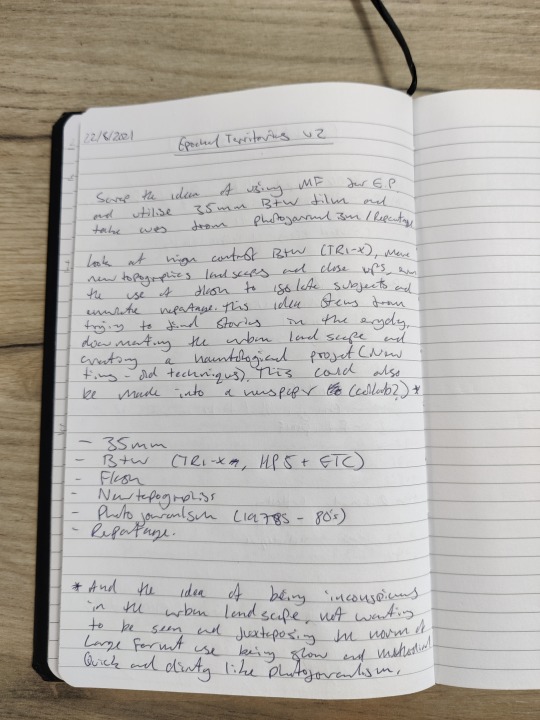 22/8/2021
Epochal Territories v2
Scrap the idea of using MF for E.P
and utilise 35mm B+W film and
take ques from photojournalism/Reportage
Look at high contrast B+W (TRI-X), more
new topographics landscapes and close ups, even
the use of flash to isolate subjects and
emulate reportage. This idea stems from
trying to find stories in the everyday,
documenting the urban landscape and
creating a hauntological project (New
- old techniques). This could also
be made into a newspaper (collab?) *
- 35mm
- B+W (TRI-X, HP5 + ETC)
- Flash
- New topographics
- Photojournalism (1970s - 80's)
- Reportage.
* And the idea of being inconspicuous
in the urban landscape, not wanting
to be seen and juxtaposing the norm of
Large Format use being slow and methodical
Quick and dirty like photojournalism.